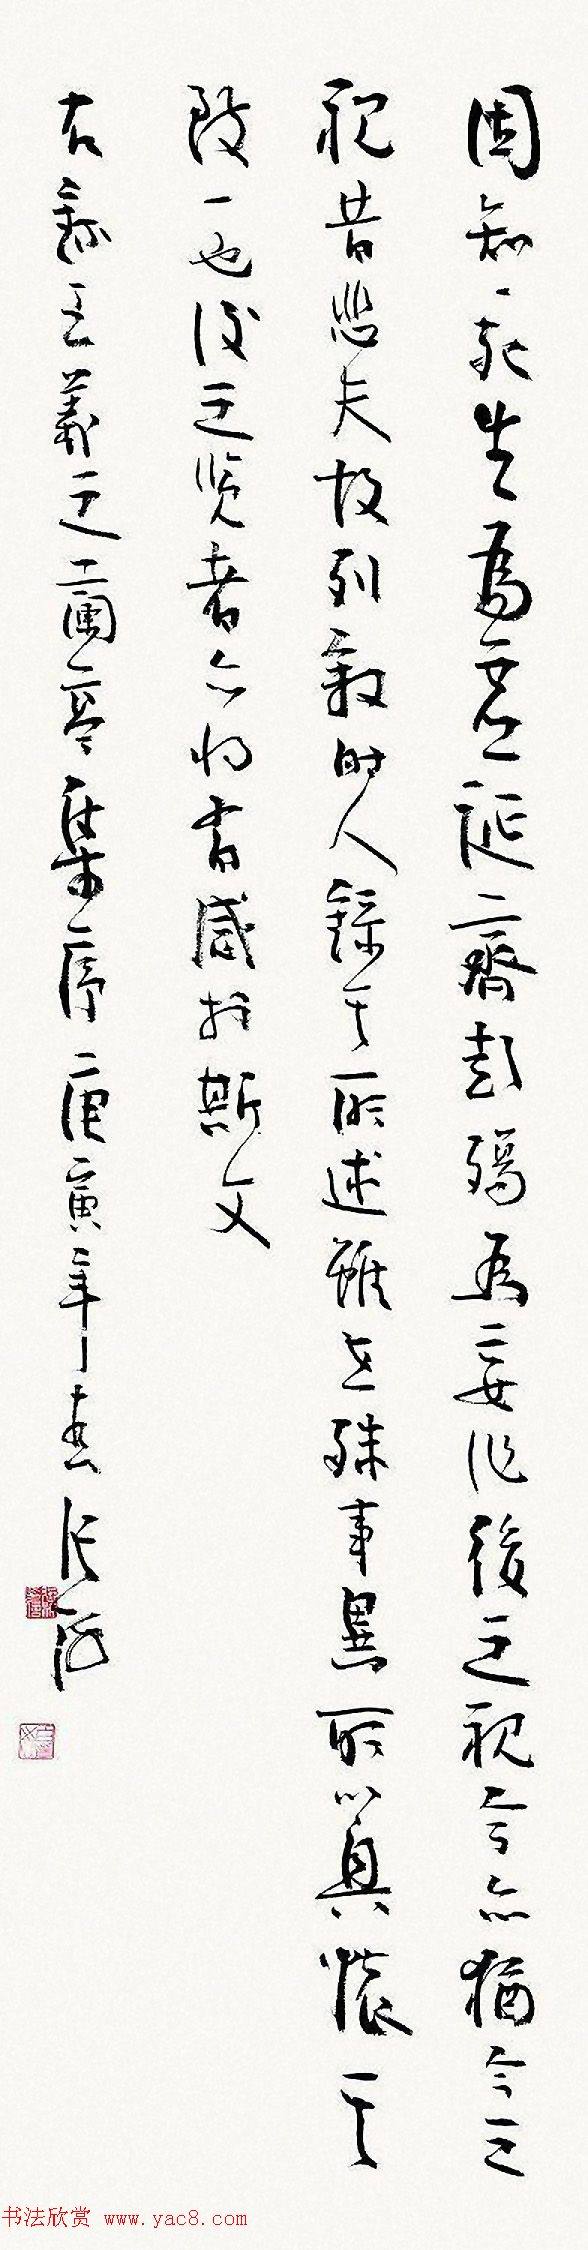 固知一死生為虛誕齊彭殤為妄作後之視今亦猶今之
視昔悲夫故列敘時人錄其所述雖世殊事異所以興懷其
致一也後之覽者亦將有感於斯文
右錄王羲之蘭亭集序庚寅年春張海
书法欣赏 www.yac8.com